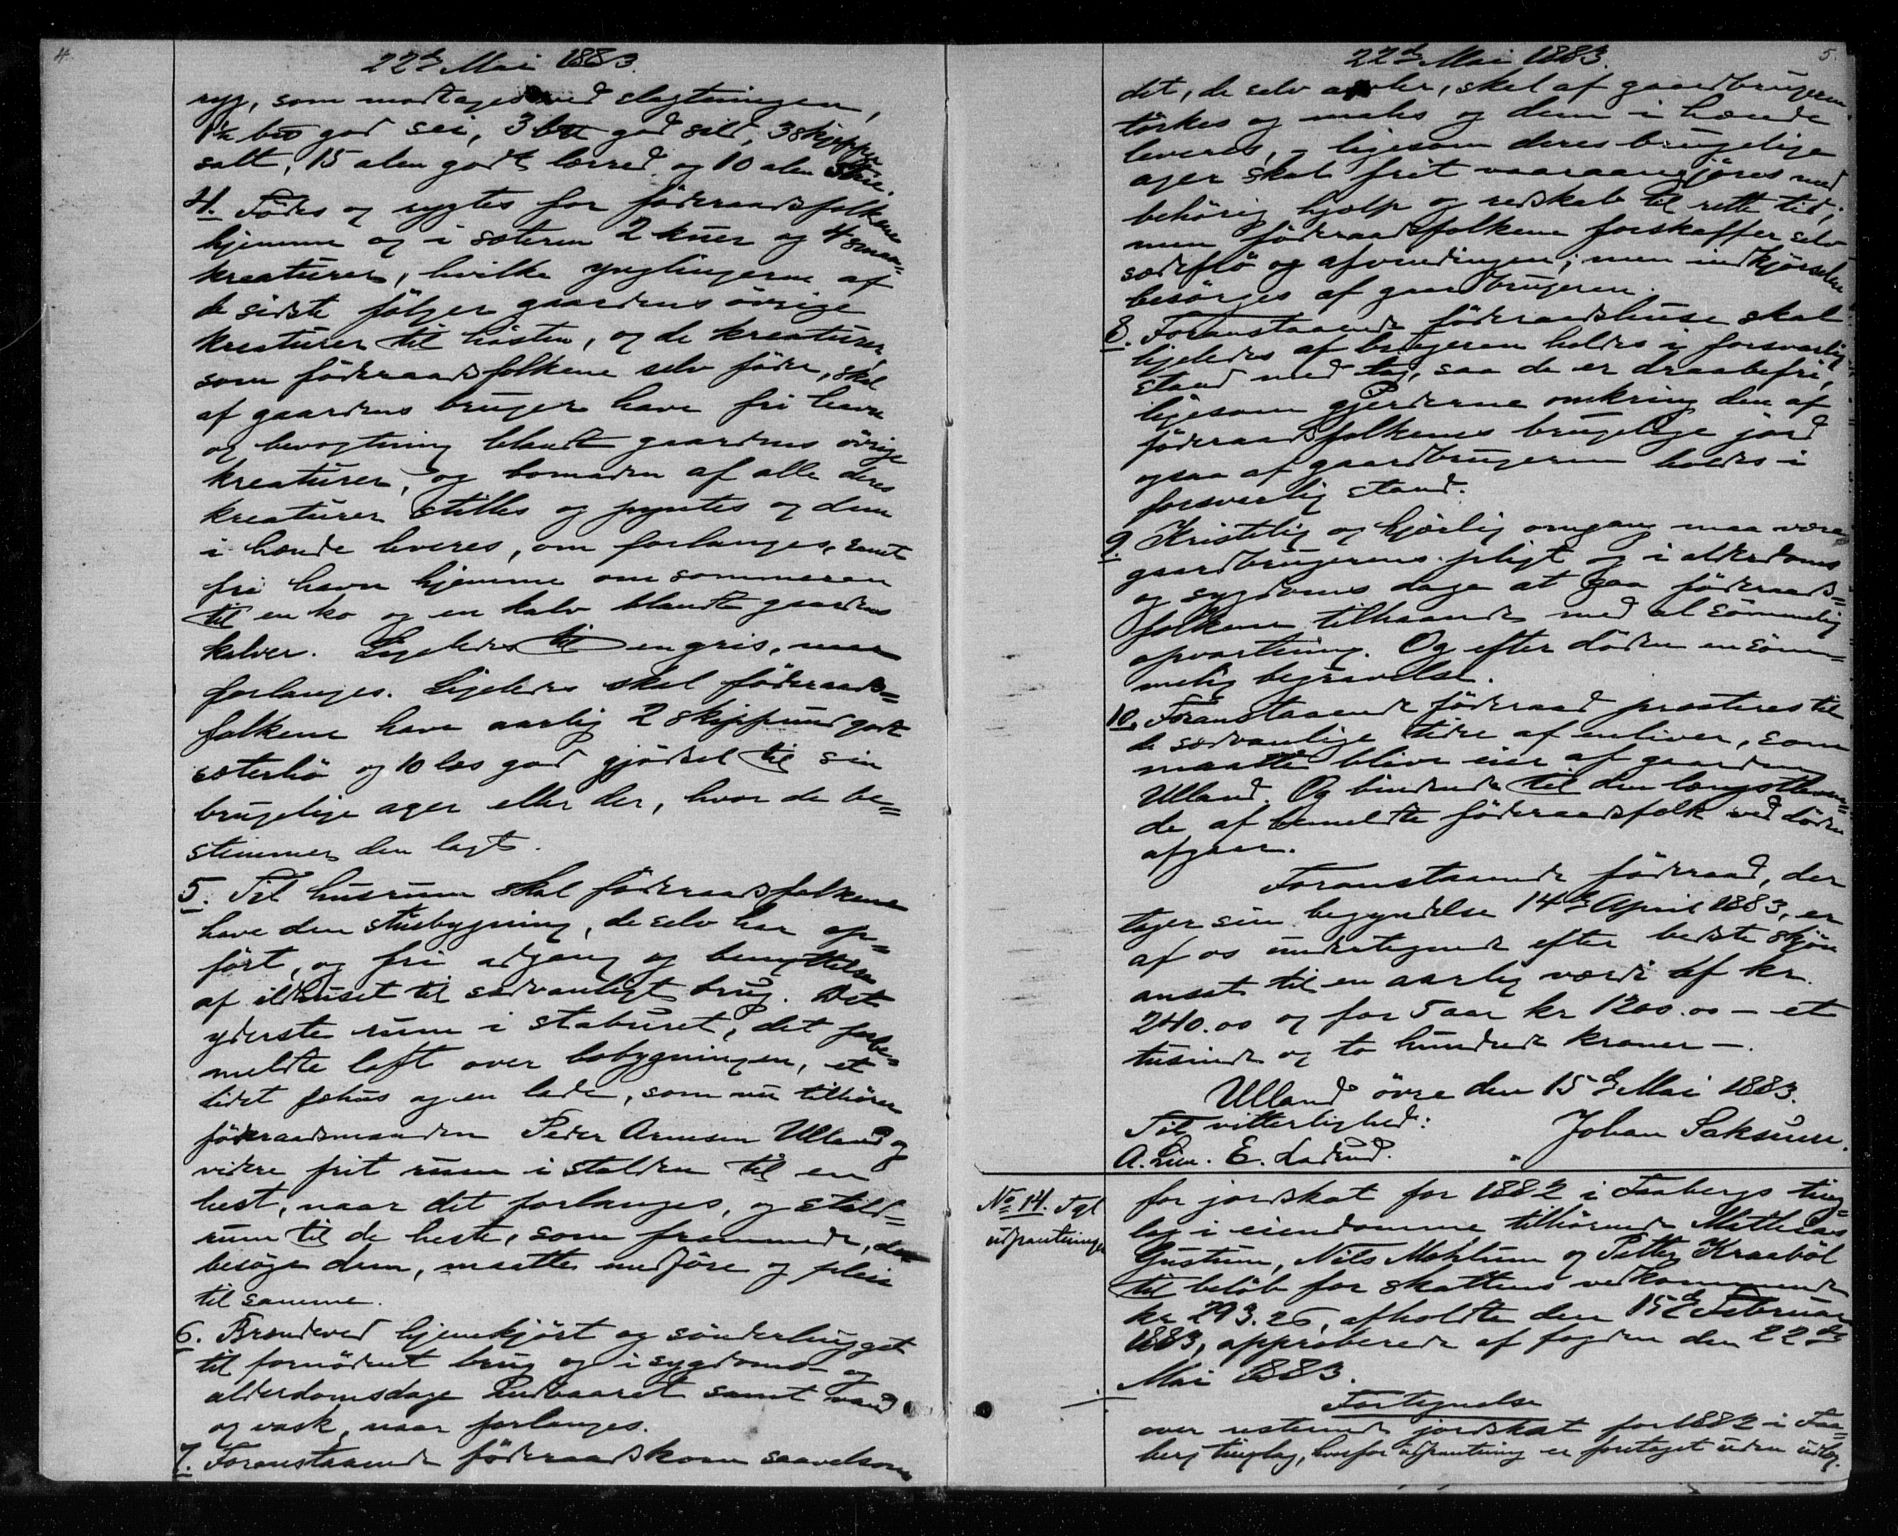 4.
22de Mai 1883.
ryg, som modtages ved slagtningen,
1½ bco god sei, 3 god sild, 3 skjepper
salt, 15 alen godt lærred og 10 alen strie.
4. Fødes og røgtes for føderaadsfolkene
hjemme og i sæteren 2 kuer og 4 smaa-
kreaturer, hvilke ynglingerne af
de sidste følger gaardens øvrige
kreaturer til høsten, og de kreaturer,
som føderaadsfolkene selv føder, skal
af gaardens bruger have fri havn
og bevogtning blandt gaardens øvrige
kreaturer, og bomaden af alle deres
kreaturer stilles og pyntes og dem
i hænde leveres, om forlanges, samt
fri havn hjemme om sommeren
til en ko og en kalv blandt gaardens
kalver. Ligeledes til en gris, naar
forlanges. Ligeledes skal føderaads-
folkene have aarlig 2 skippund godt
sæterhø og 10 læs god gjødsel til sin
brugelige ager eller der, hvor de be-
stemmer den lagt.
5. Til husrum skal føderaadsfolkene
have den stuebygning, de selv har op-
ført, og fri adgang og benyttelse
af ildhuset til sædvanligt brug. Det
yderste rum i staburet, det forbe-
meldte loft over bobygningen, et
lidet fæhus og en lade, som nu tilhører
føderaadsmanden Peder Arnesen Ulland og
videre frit rum i stalden til en
hest, naar det forlanges, og stald-
rum til de heste, som fremmede, der
besøge dem, maatte medføre og pleie
til samme.
6. Brændeved hjemkjørt og sønderhugget
til fornødent brug og i sygdoms- og
alderdomsdage indbaaret samt vand
og vask, naar forlanges.
7. Foranstaaende føderaadskorn saavelsom
5.
22de Mai 1883.
det, de selv avler, skal af gaardbrugeren
tørkes og males og dem i hænde
leveres, ligesom deres brugelige
ager skal frit vaaraangjøres med
behørig hjælp og redskab til rette tid;
men føderaadsfolkene forskaffer selv
sædeflø og afvendingen; men indkjørselen
besørges af gaardbrugeren.
8. Foranstaaende føderaadshuse skal
ligeledes af brugeren holdes i forsvarlig
stand med tag, saa de er draabefri,
ligesom gjerderne omkring den af
føderaadsfolkenes brugelige jord
ogsaa af gaardbrugeren holdes i
forsvarlig stand.
9. Kristelig og kjærlig omgang maa være
gaardbrugerens pligt og i alderdoms
og sygdoms dage at gaa føderaads-
folkene tilhaande med al sømmelig
opvartning. Og efter døden en søm-
melig begravelse.
10. Foranstaaende føderaad præsteres til
de sædvanlige tider af enhver, som
maatte blive eier af gaarden
Ulland. Og bindende til den længstleven-
de af bemeldte føderaadsfolk ved døden
afgaar.
Foranstaaende føderaad, der
tager sin begyndelse 14de April 1883, er
af os undertegnede efter bedste skjøn
ansat til en aarlig værdi af kr.
240.00 og for 5 aar kr 1200.00 – et
tusinde og to hundrede kroner –.
Ulland øvre den 15de Mai 1883.
Til vitterlighed: Johan Saksum.
A. Lien. E. Ladrud.
No 14. Fgl
udpantninger
for jordskat for 1882 i Faabergs thing-
lag i eiendomme tilhørende Mathias
Gustum, Nils Mæhlum og Petter Kraabøl
til beløb for skattens vedkommende
kr 293.26, afholdte den 15de Februar
1883, approberede af fogden den 22de
Mai 1883.
Fortegnelse
over resterende jordskat for 1882 i Faa-
berg tinglag, hvorfor udpantning er foretaget uden udlæg.